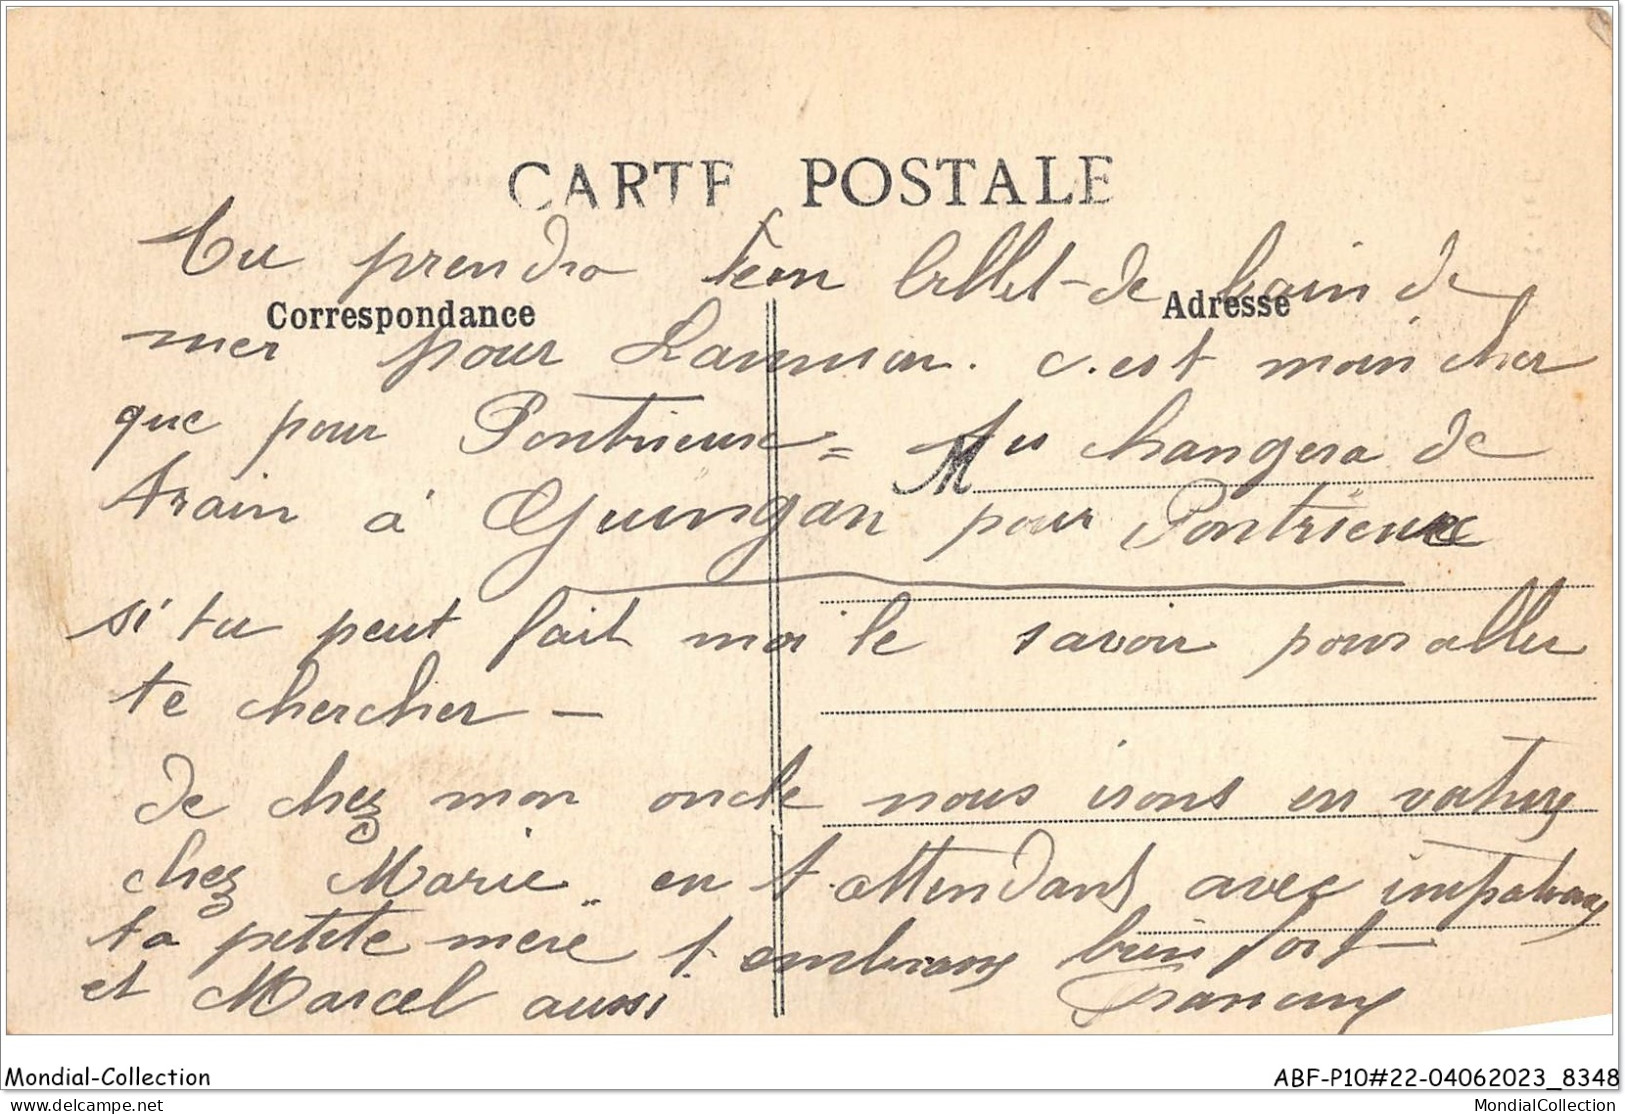 CARTE POSTALE
Tu prendra un billet de bain de
Correspondance
Adresse
mer pour Lannion. c.est moin cher
que pour Pontrieux = tu changera de
M
train à Guingan pour Pontrieux
si tu peut fait moi le savoir pour aller
te chercher —
de chez mon oncle nous irons en voiture
chez Marie .. en t.attendant avec impatience
ta petite mere t. embrasse bien fort
et Marcel aussi
Mondial-Collection
ABF-P10#22-04062023_8348
delcampe.net
MondialCollection